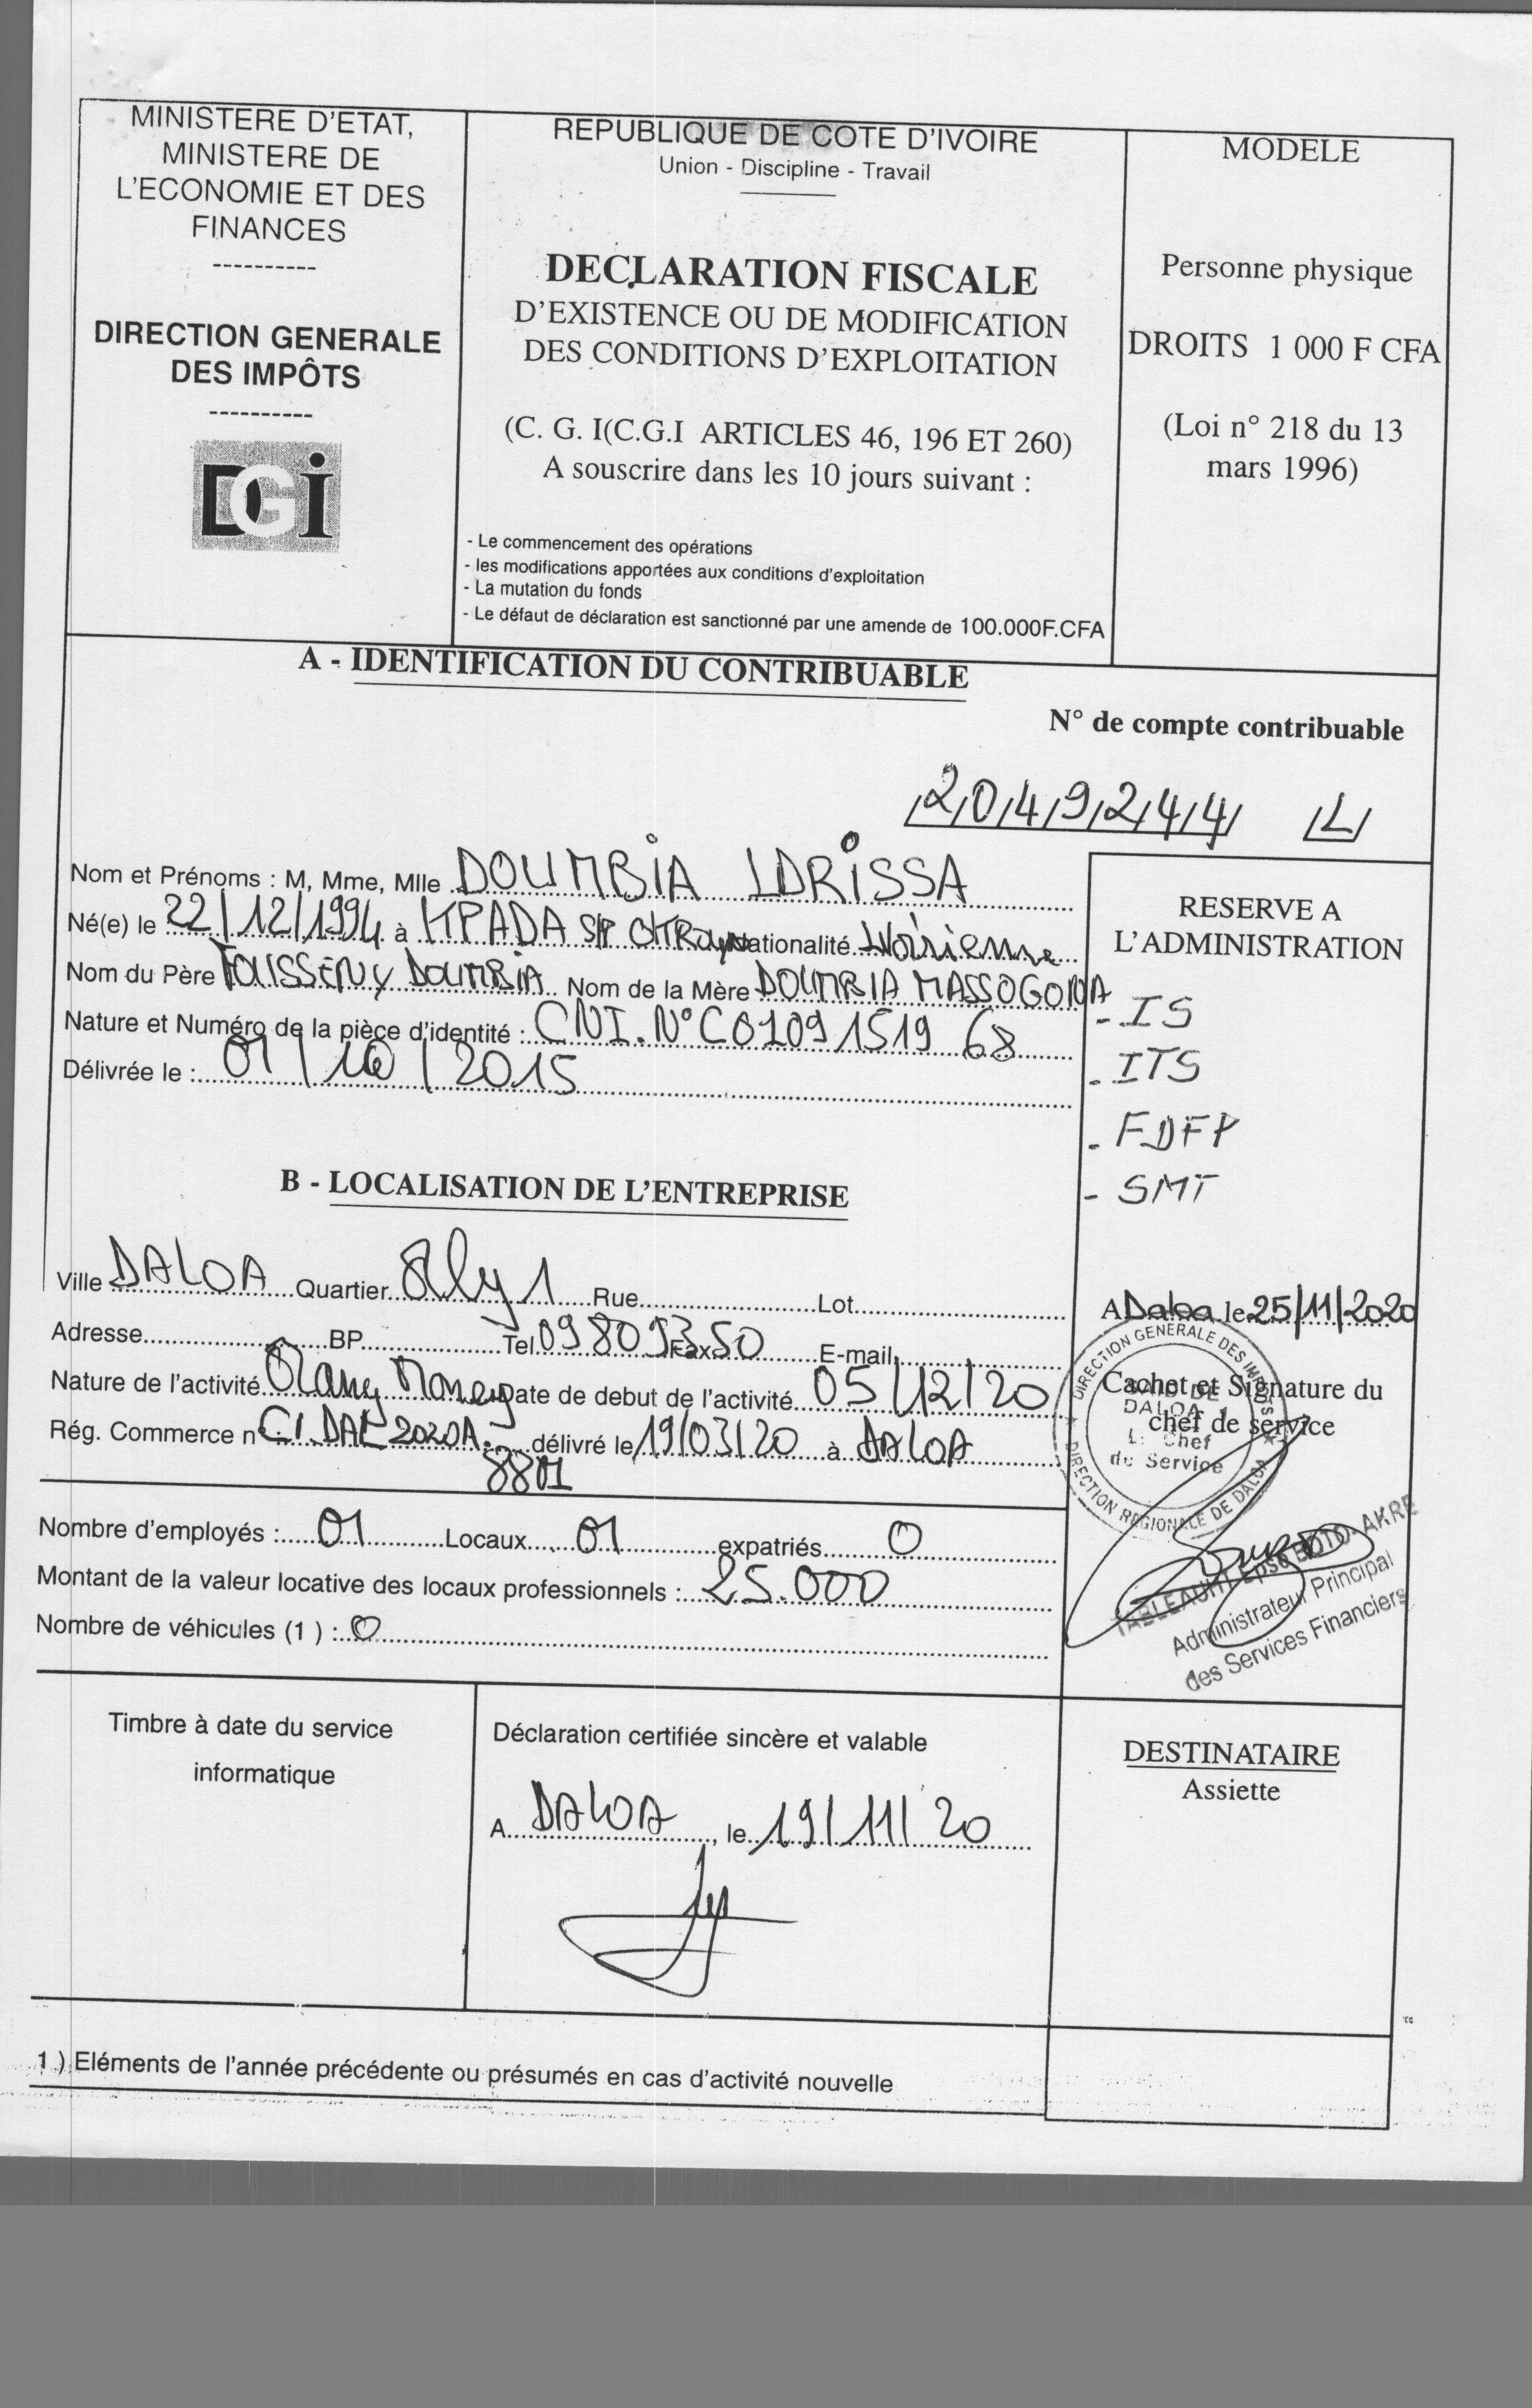 MINISTERE D'ETAT,
MINISTERE DE
L'ECONOMIE ET DES
FINANCES
----------
DIRECTION GENERALE
DES IMPÔTS
----------
DGI
REPUBLIQUE DE COTE D'IVOIRE
Union - Discipline - Travail
DECLARATION FISCALE
D'EXISTENCE OU DE MODIFICATION
DES CONDITIONS D'EXPLOITATION
(C. G. I(C.G.I ARTICLES 46, 196 ET 260)
A souscrire dans les 10 jours suivant :
- Le commencement des opérations
- les modifications apportées aux conditions d'exploitation
- La mutation du fonds
- Le défaut de déclaration est sanctionné par une amende de 100.000F.CFA
MODELE
Personne physique
DROITS 1 000 F CFA
(Loi n° 218 du 13
mars 1996)
A - IDENTIFICATION DU CONTRIBUABLE
N° de compte contribuable
/2/0/4/9/2/4/4/ /L/
Nom et Prénoms : M, Mme, Mlle DOUMBIA IDRISSA
Né(e) le 22/12/1994 à KPADA S/P Nationalité Ivoirienne
Nom du Père DOUMBIA Nom de la Mère DOUMBIA MASSOGONA
Nature et Numéro de la pièce d'identité : CNI. N° C0109 1519 68
Délivrée le : 01/10/2015
RESERVE A
L'ADMINISTRATION
- IS
- ITS
- FDFP
- SMT
B - LOCALISATION DE L'ENTREPRISE
Ville DALOA Quartier 1 Rue Lot
Adresse BP Tel 09809350 Fax E-mail
Nature de l'activité Money Date de debut de l'activité 05/12/20
Rég. Commerce n° CI.DAL 2020A. délivré le 19/03/20 à DALOA
8801
A Daloa le 25/11/2020
Cachet et Signature du
chef de service
DIRECTION GENERALE DES IMPOTS
DIRECTION REGIONALE DE DALOA
DE
DALOA
Le Chef
du Service
Epse BOTO-AKRE
Administrateur Principal
des Services Financiers
Nombre d'employés : 01 Locaux 01 expatriés 0
Montant de la valeur locative des locaux professionnels : 25.000
Nombre de véhicules (1 ) : 0
Timbre à date du service
informatique
Déclaration certifiée sincère et valable
A DALOA, le 19/11/20
DESTINATAIRE
Assiette
1 ) Eléments de l'année précédente ou présumés en cas d'activité nouvelle